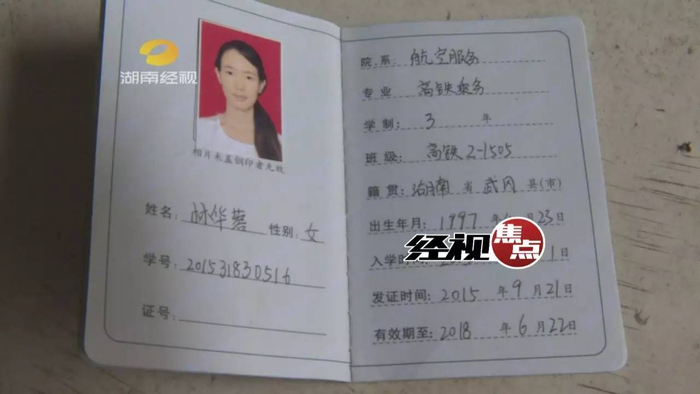 湖南经视
相片未盖钢印者无效
姓名: 林华蓉 性别: 女
学号: 201531830516
证号:
院系: 航空服务
专业 高铁乘务
学制: 3 年
班级: 高铁2-1505
籍贯: 湖南 省 武冈 县(市)
出生年月: 1997 年 23日
入学时间: 1日
发证时间: 2015 年 9月21日
有效期至: 2018 年 6月22日
经视焦点